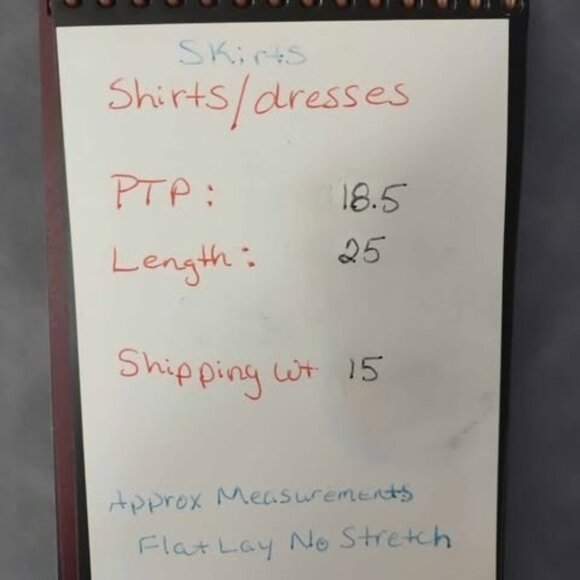 Skirts
Shirts/dresses
PTP: 18.5
Length: 25
Shipping wt 15
Approx Measurements
Flat Lay No Stretch